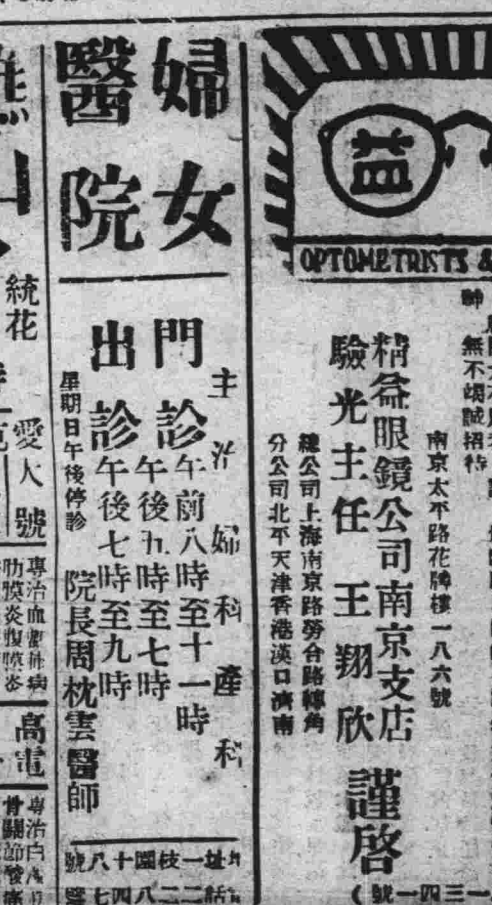 益
OPTOMETRISTS &
無不竭誠招待
南京太平路花牌樓一八六號
精益眼鏡公司南京支店
驗光主任 王翔欣 謹啓
總公司上海南京路勞合路轉角
分公司北平天津香港漢口濟南
婦女
醫院
主治婦科產科
門診
午前八時至十一時
午後五時至七時
出診
午後七時至九時
星期日午後停診
院長周枕雲醫師
址一枝園十八號
統花
愛人號
肋膜炎腹膜炎
高電